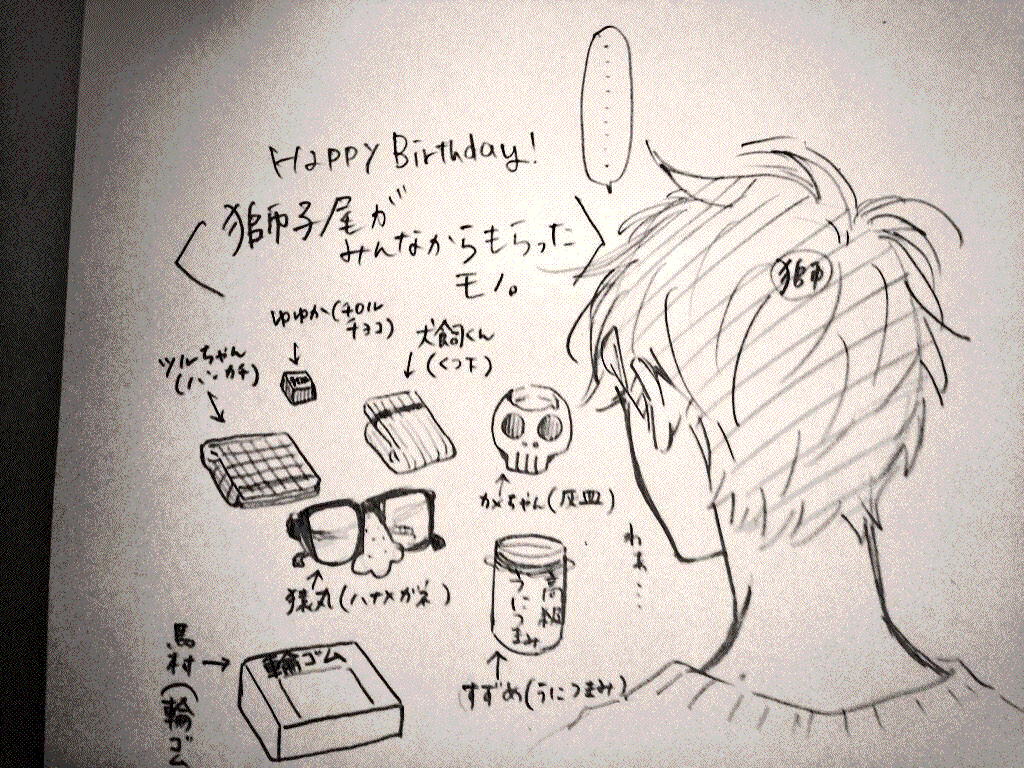 Happy Birthday!
獅子尾が
みんなからもらった
モノ。
獅
ゆゆか(チロル
チョコ)
犬飼くん
(くつ下)
ツルちゃん
(ハンカチ)
カメちゃん(灰皿)
わぁ…
猿丸(ハナメガネ)
高級
うにつまみ
すずめ(うにつまみ)
馬村(輪ゴム
輪ゴム